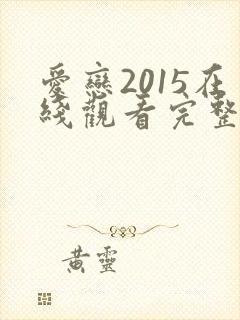 愛戀2015在
綫觀看完整
黃靈